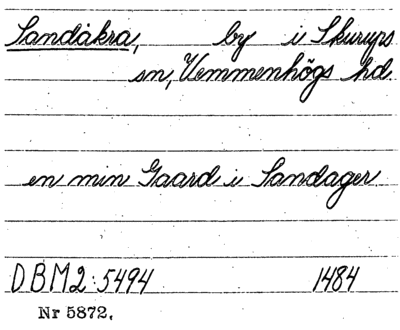 Sandåkra, by i Skurups
sn, Vemmenhögs hd
en min Gaard i Sandager
DBM2:5494 1484
Nr 5872,